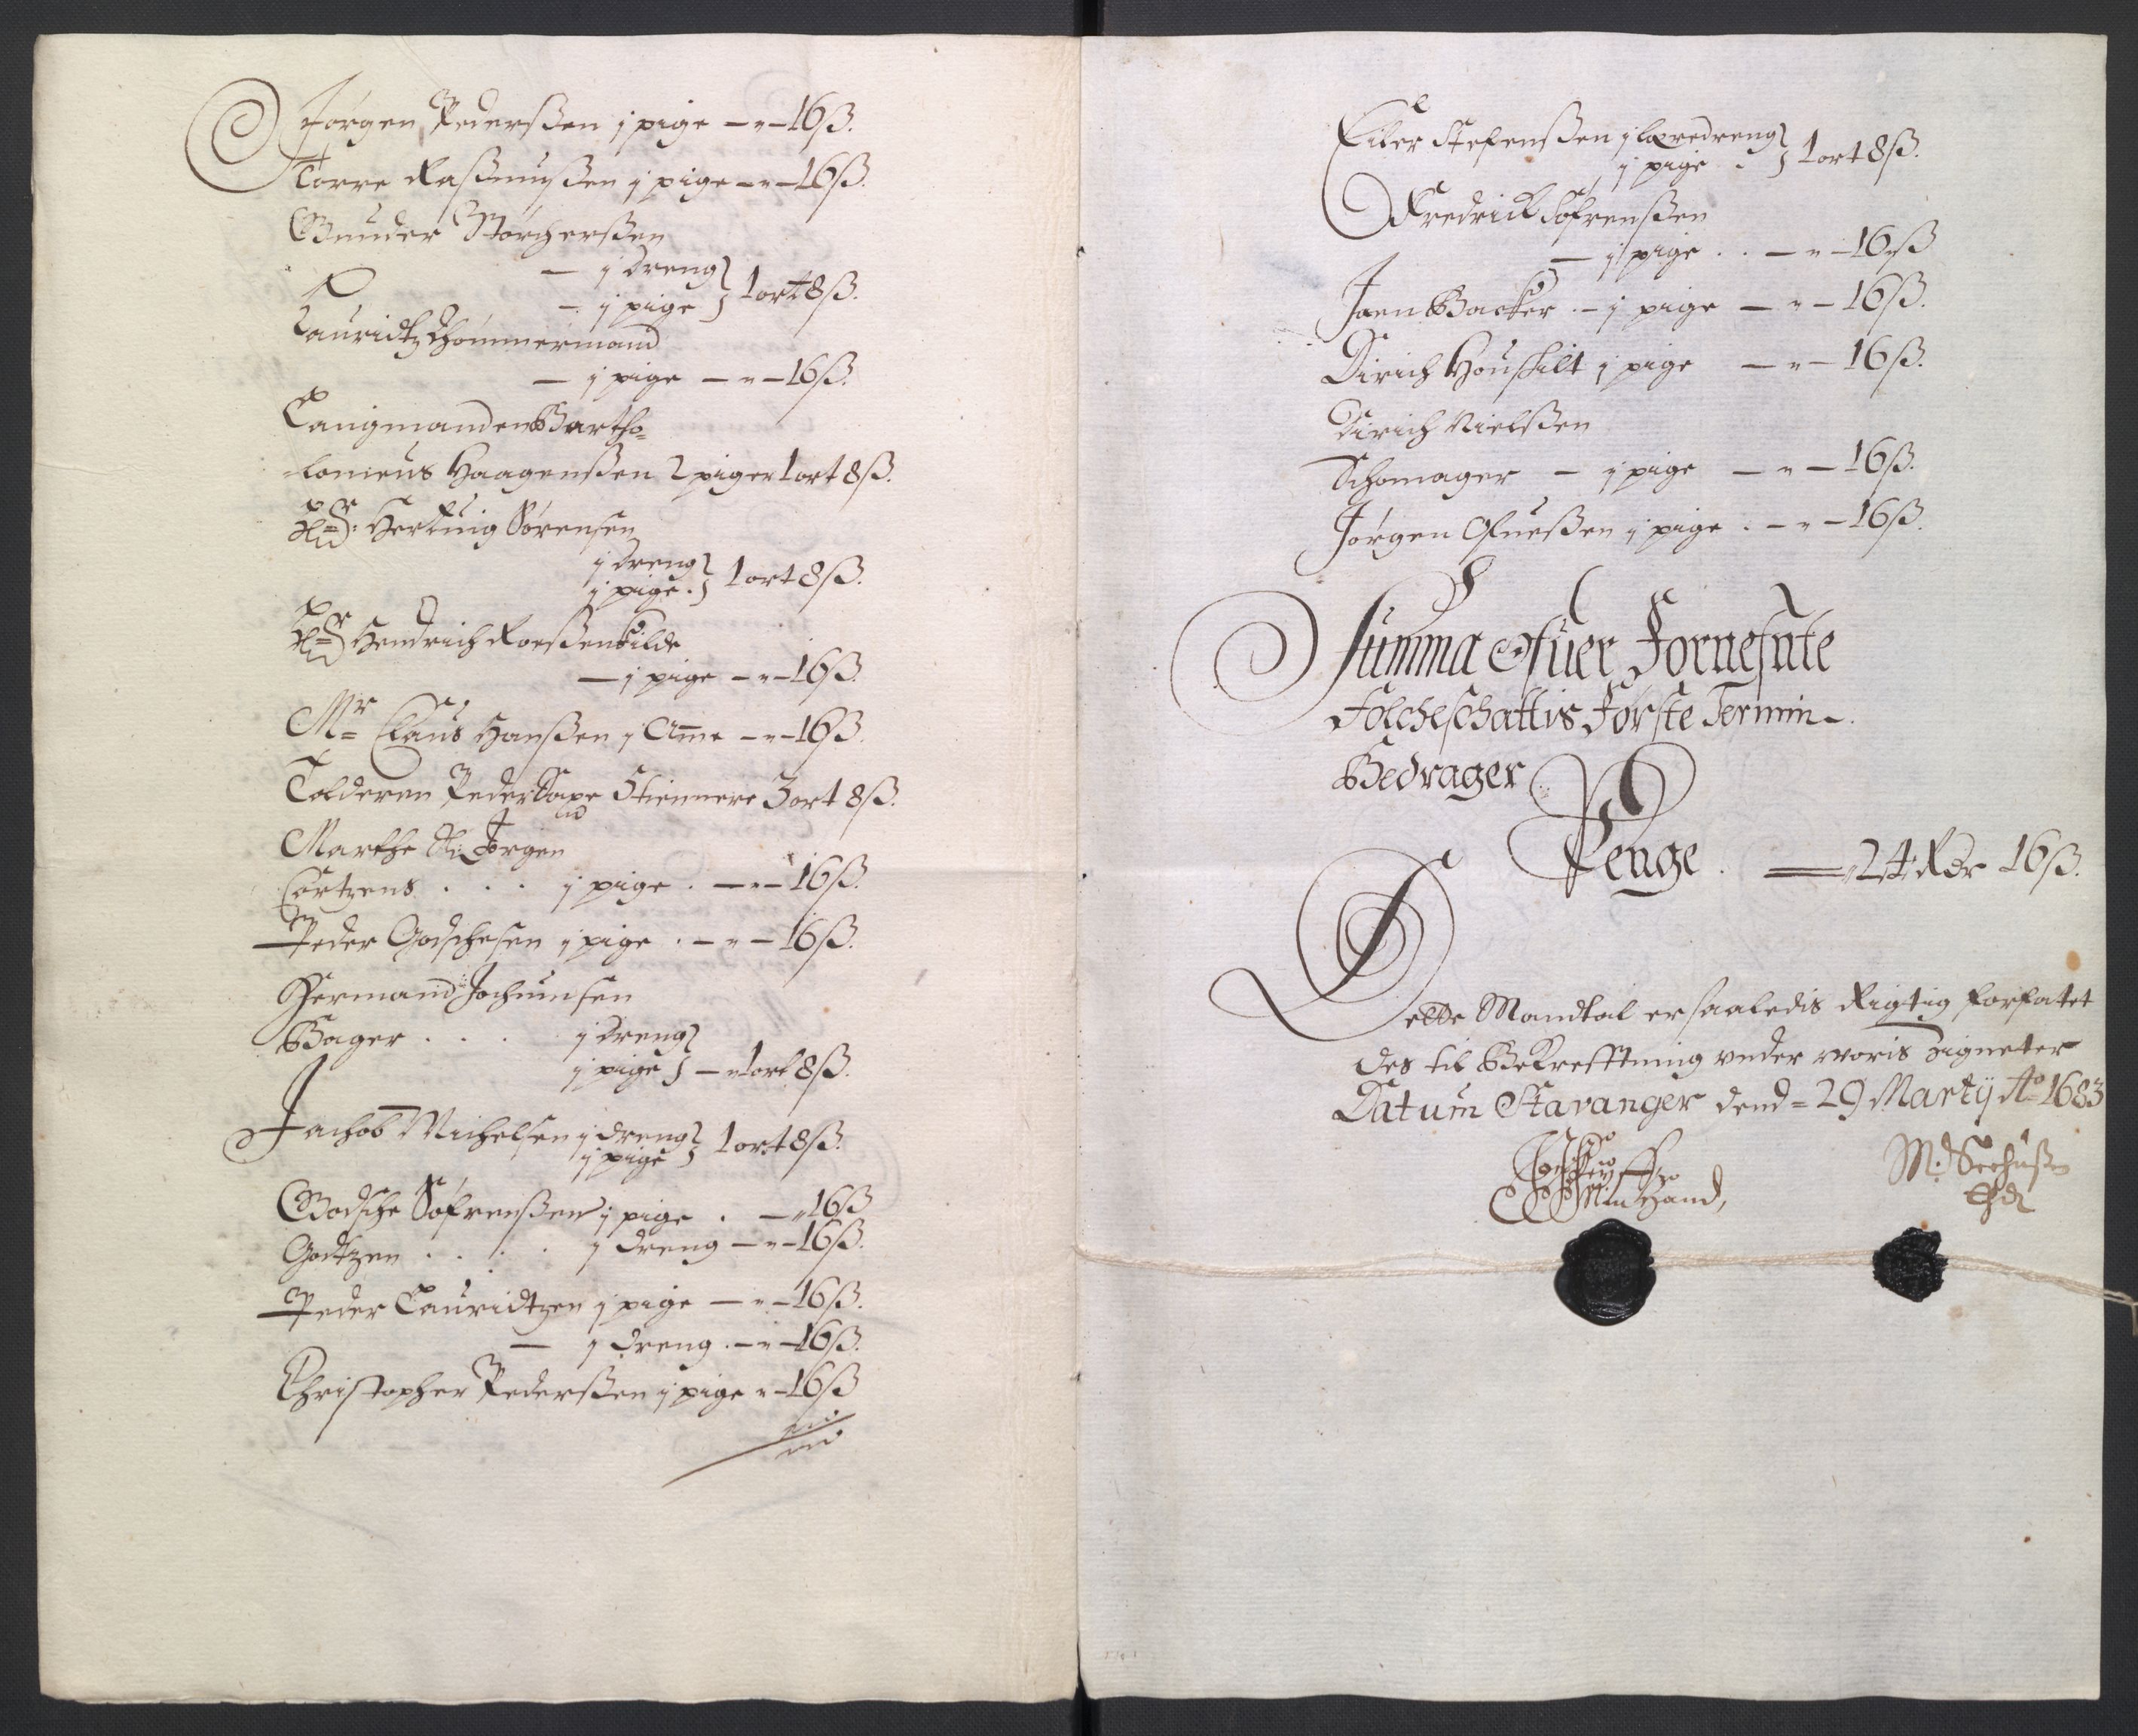 Jørgen Pederssen j pige — " — 16 ß.
Torre Rassmussen j pige — " — 16 ß.
Gunder Størchersen
— j dreng
— j pige } 1 ort 8 ß.
Lauridtz Thømmermand
— j pige — " — 16 ß.
Laugmanden Bartho=
lomeus Haagenssen 2 piger 1 ort 8 ß.
Hr: Herluig Sørensen
j dreng
j pige. } 1 ort 8 ß.
Hr Hendrich Roessenkilde
— j pige — " — 16 ß.
Mr Claus Hanssen j Amme — " — 16 ß.
Tolderen Peder Saxe 5 tiennere 3 ort 8 ß.
Marthe Sl: Jørgen
Cortzens . . . j pige . — " — 16 ß.
Peder Godschesen j pige . — " — 16 ß.
Hermand Jochumsen
Bager . . . j dreng
j pige } — " 1 ort 8 ß.
Jachob Michelsen j dreng
j pige } 1 ort 8 ß.
Godsche Søfrenssen j pige . — " 16 ß
Godtzen . . . . j dreng — " — 16 ß.
Peder Lauridtzen j pige — " — 16 ß.
— j dreng . — " — 16 ß.
Christopher Pederssen j pige " — 16 ß
Eiler Stefenssen j læredreng
j pige . } 1 ort 8 ß.
Fredrich Søfrenssen
— j pige . . — " — 16 ß
Jaen Backer . — j pige — " — 16 ß.
Dirich Houskilt j pige — " — 16 ß.
Dirich Nielssen
Schomager — j pige — " — 16 ß.
Jørgen Ofuessen j pige . — " — 16 ß.
Summa Ofuer Fornefnte
Folcheschattis Første Termin
Bedrager
Penge . — 24 Rdr 16 ß.
Dette Mandtal er saaledis Rigtig forfatet
des til Bekrefftning vnder woris Zigneter
Datum Stavanger dend = 29 Martij Ao 1683
M. Seehuss
Min Hand,